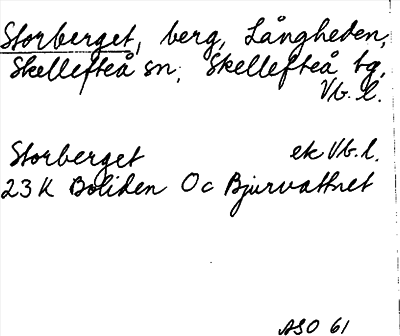 Storberget, berg, Långheden,
Skellefteå sn, Skellefteå tg,
Vb. l.
Storberget ek Vb. l.
23 K Boliden 0c Bjurvattnet
ASO 61